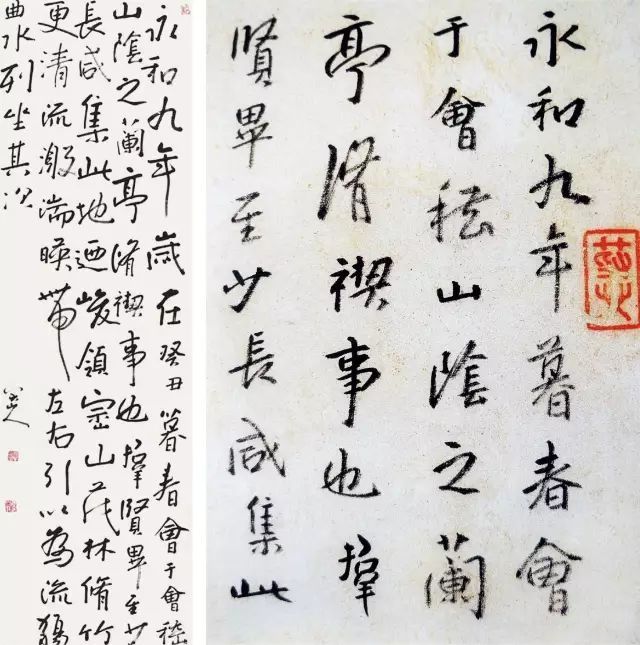 永和九年歲在癸丑暮春會于會稽
山陰之蘭亭脩禊事也羣賢畢至少
長咸集此地迺峻領崇山茂林脩竹
更清流激湍暎帶左右引以為流觴
曲水列坐其次
八大山人
永和九年暮春會
于會稽山陰之蘭
亭脩禊事也羣
賢畢至少長咸集此